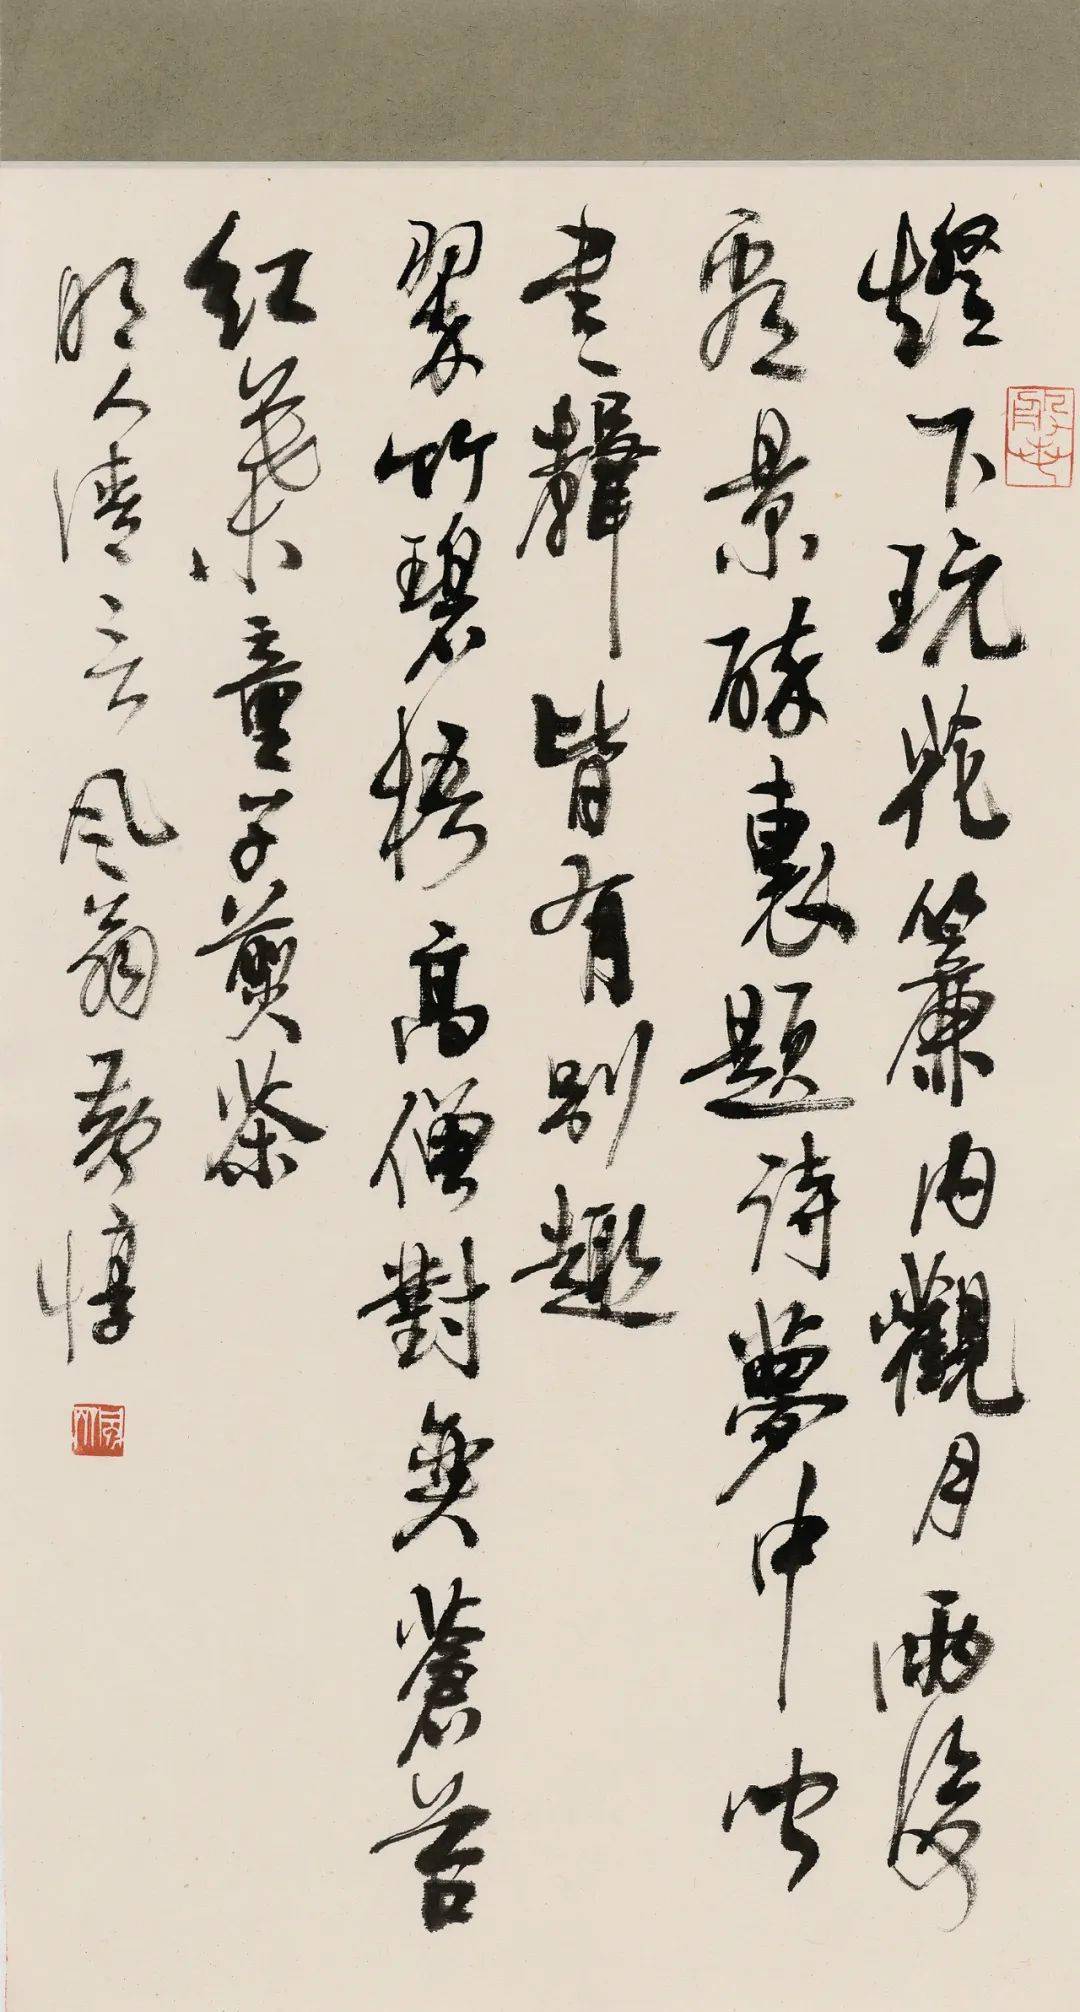 燈下玩花簾內觀月雨後
景醉裏題詩夢中聞
書聲皆有別趣
翠竹碧梧高僧對奕蒼苔
紅葉童子煎茶
明人清言風翁黃惇